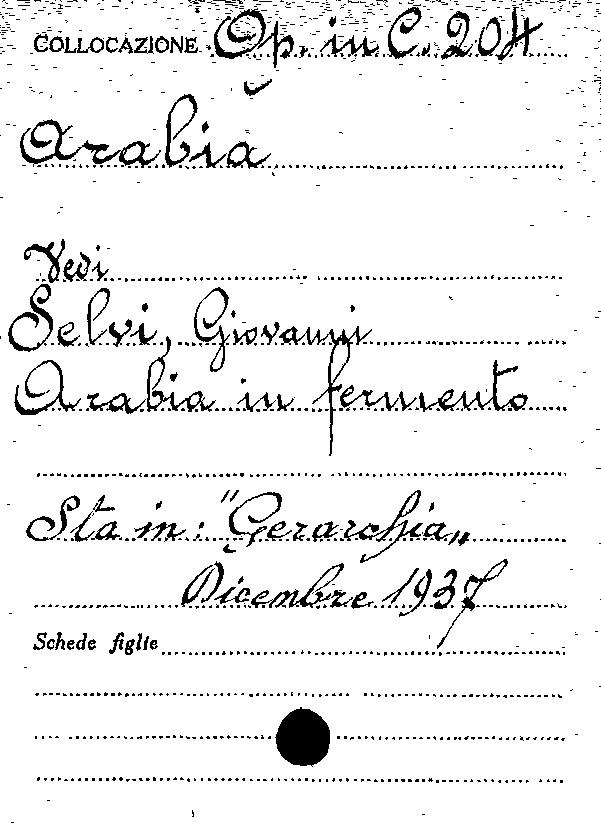 COLLOCAZIONE Op. in C. 204
Arabia
Vedi
Selvi, Giovanni
Arabia in fermento
Sta in: "Gerarchia„
Dicembre 1937
Schede figlie